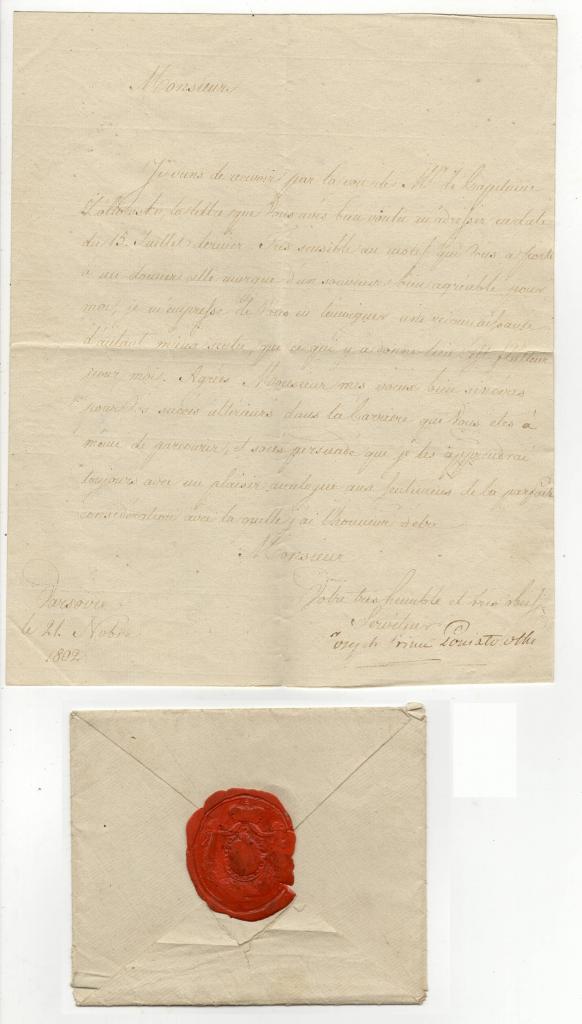 Monsieur
Je viens de recevoir par la voie de Mr. le Capitaine
la lettre que Vous avés bien voulu m'adresser en date
du 15 Juillet dernier. Très sensible au motif qui Vous a porté
a me donner cette marque d'un souvenir bien agréable pour
moi, je m'empresse de Vous en temoigner une reconnaissance
d'autant mieux sentie, que ce qui y a donné lieu est flatteur
pour moi. Agrées Monsieur mes voeux bien sinceres
pour des succès ultérieurs dans la Carriere que Vous etes à
meme de parcourir, et soies persuadé que je les apprendrai
toujours avec un plaisir analogue aux sentimens de la parfaite
consideration avec la quelle j'ai l'honneur d'etre
Monsieur
Votre tres humble et tres obeist
Serviteur
Joseph Prince Poniatowski
Varsovie
le 21. Nobre
1802